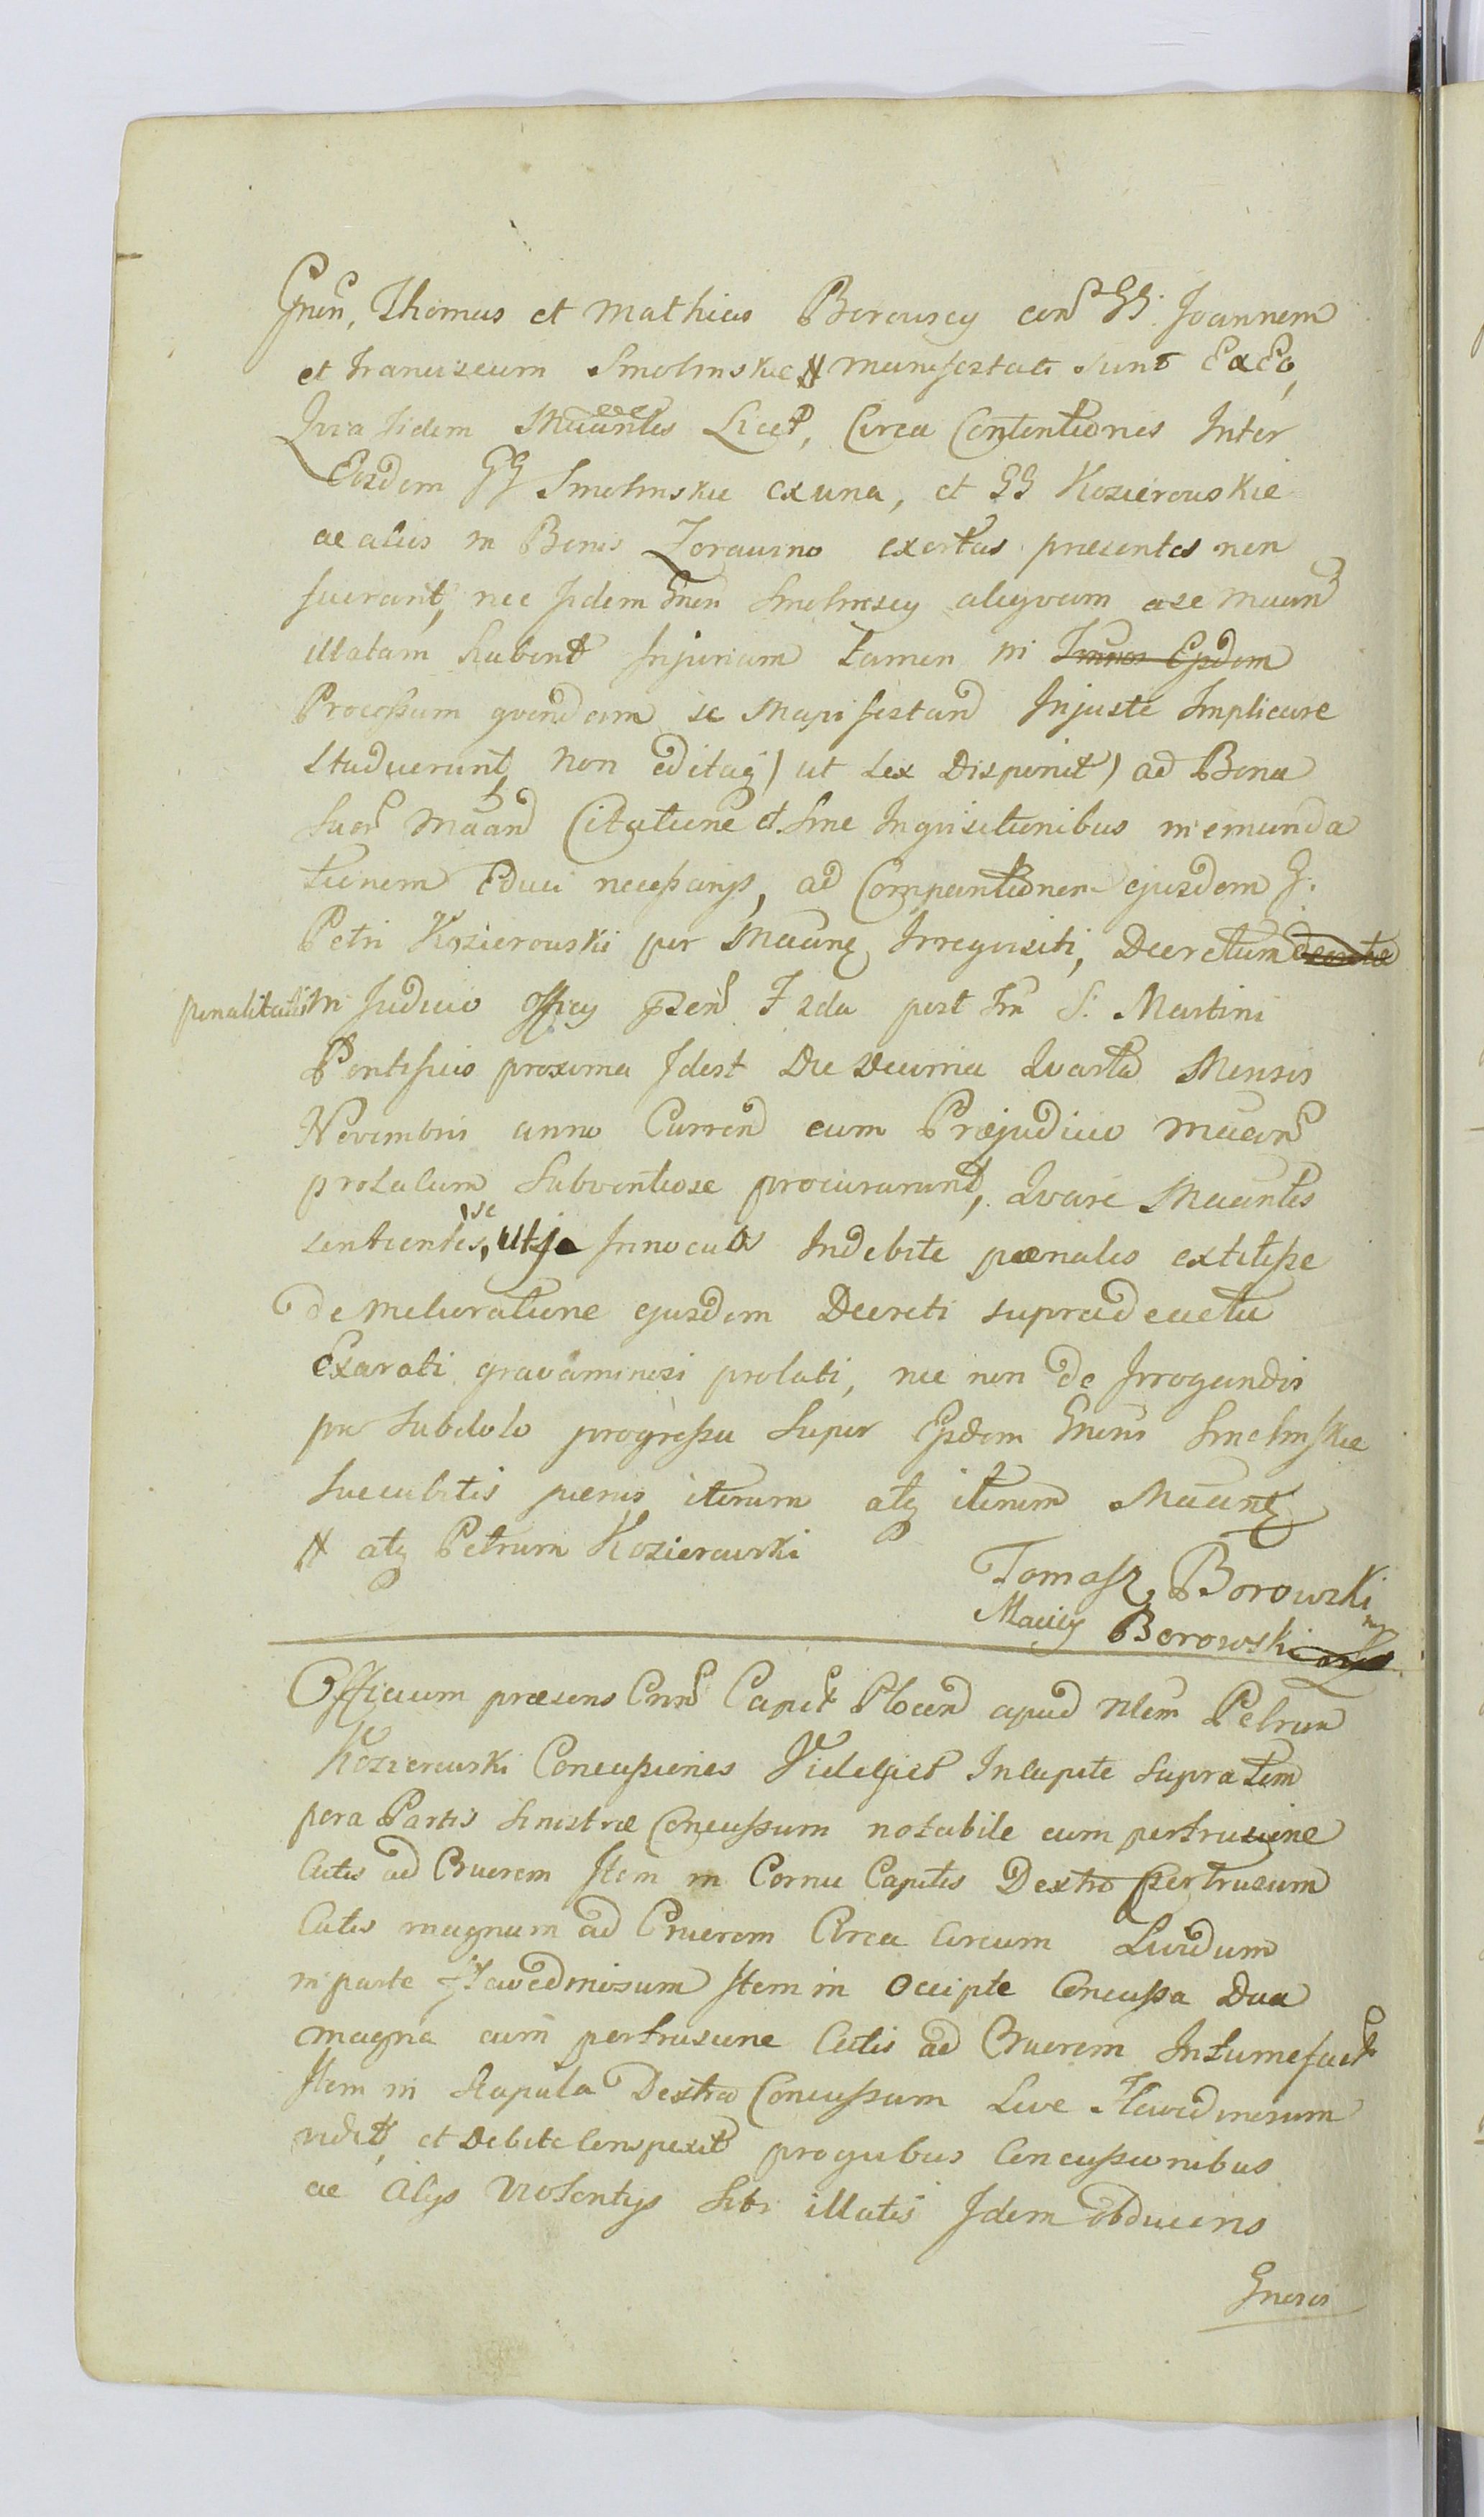 Gnen, Thomas et Mathias Borowscy con GG Joannem
et Franciscum Smolinskie # manifestati sunt Ex Eo,
Quia Iidem Maantes Licet, Circa Contentiones Inter
Eosdem GG Smolinskie ex una, et GG Kozierowskie
ac alios in Bonis Zorawino exortas praesentes non
fuerant, nec Iidem Gnen Smolinscy aliqvam a se Maand
illatam habent Injuriam tamen in Eosdem
Processum qvendam se Manifestand Injuste Implicare
studuerunt, non editaq) ut Lex Disponit) ad Bona
suor Maand Citatione et sine Inqvisitionibus in emunda
tionem Educi necessarys, ad Comparitionem ejusdem G.
Petri Kozierowski per Maanq Irreqvisiti, Decretum
penalitatis in Judicio Officy pzen F 2da post Fm S. Martini
Pontificis proxima Idest Die Decima Qvarta Mensis
Novembris anno Curren cum Præjudicio Maand
prolatum Subventiose procurarunt, Qvare Maantes
sentientes, se Innocuos Indebite pœnales extitisse
de melioratione ejusdem Decreti supradeactu
Exarati gravaminosi prolati, nec non de Irrogandis
pro Subdolo progressu super Eosdem Gnenos Smolinskie
succubitis pœnis iterum atq iterum Maanq
# atq Petrum Kozierowski
Tomasz Borowski
Maciey Borowski
Officium præsens Cnn Capit Plocen apud Nlem Petrum
Kozierowski Concussiones Videlicet In capite supra tem
pora Partis sinistræ Concussum notabile cum pertrusione
Cutis ad Cruorem Item in Cornu Capitis Dextro pertrusum
Cutis magnum ad Cruorem Circa Circum Lividum
in parte Flavedinosum Item in Occipite Concussa Dua
magna cum pertrusione Cutis ad Cruorem Intumefact
Item in Scapula Dextra Concussum Leve Flavedinosum
vidit, et Debite Conspexit pro qvibus Concussionibus
ac alys violentys Sibi illatis Idem obducens
Gneros